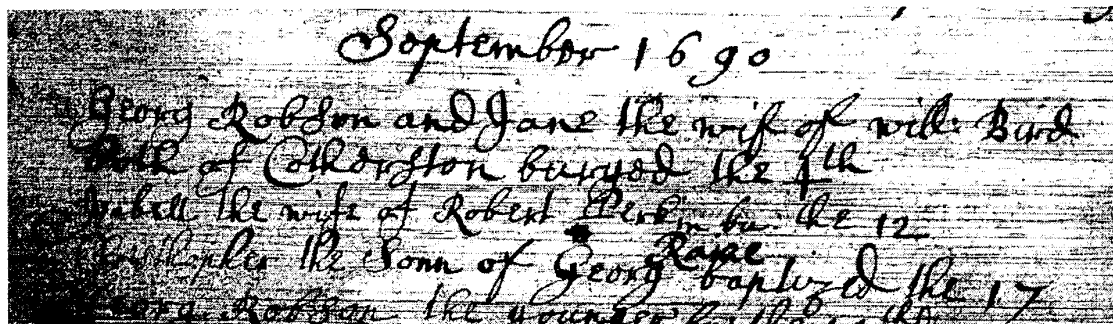 September 1690
Georg Robson and Jane the wife of will: Bird
both of Cotherston buryed the 4th
Isabell the wife of Robert Perkin bu: the 12
Rape
Christopher the Sonn of Georg baptized the 17
Georg Robson the younger